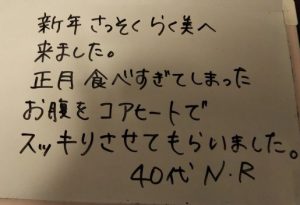 新年 さっそく らく美へ
来ました。
正月 食べすぎてしまった
お腹を コアヒートで
スッキリさせてもらいました。
40代 N.R